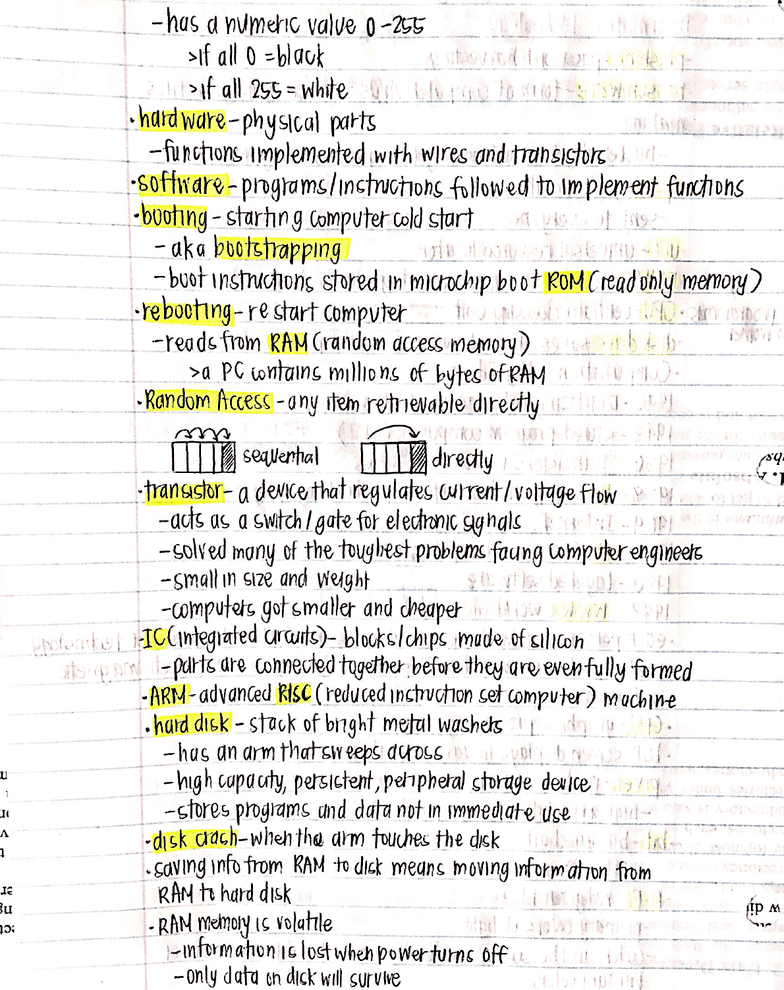 -has a numeric value 0-255
>if all 0 =black
>if all 255 = white
•hardware-physical parts
-functions implemented with wires and transistors
•software-programs/instructions followed to implement functions
•booting-starting computer cold start
-aka bootstrapping
-boot instructions stored in microchip boot ROM (read only memory)
•rebooting-restart computer
-reads from RAM (random access memory)
>a PC contains millions of bytes of RAM
•Random Access-any item retrievable directly
sequential directly
•transistor-a device that regulates current/voltage flow
-acts as a switch/gate for electronic signals
-solved many of the toughest problems facing computer engineers
-small in size and weight
-computers got smaller and cheaper
•IC (integrated circuits)-blocks/chips made of silicon
-parts are connected together before they are even fully formed
•ARM-advanced RISC (reduced instruction set computer) machine
•hard disk-stack of bright metal washers
-has an arm that sweeps across
-high capacity, persistent, peripheral storage device
-stores programs and data not in immediate use
•disk crash-when the arm touches the disk
•saving info from RAM to disk means moving information from
RAM to hard disk
•RAM memory is volatile
-information is lost when power turns off
-only data on disk will survive